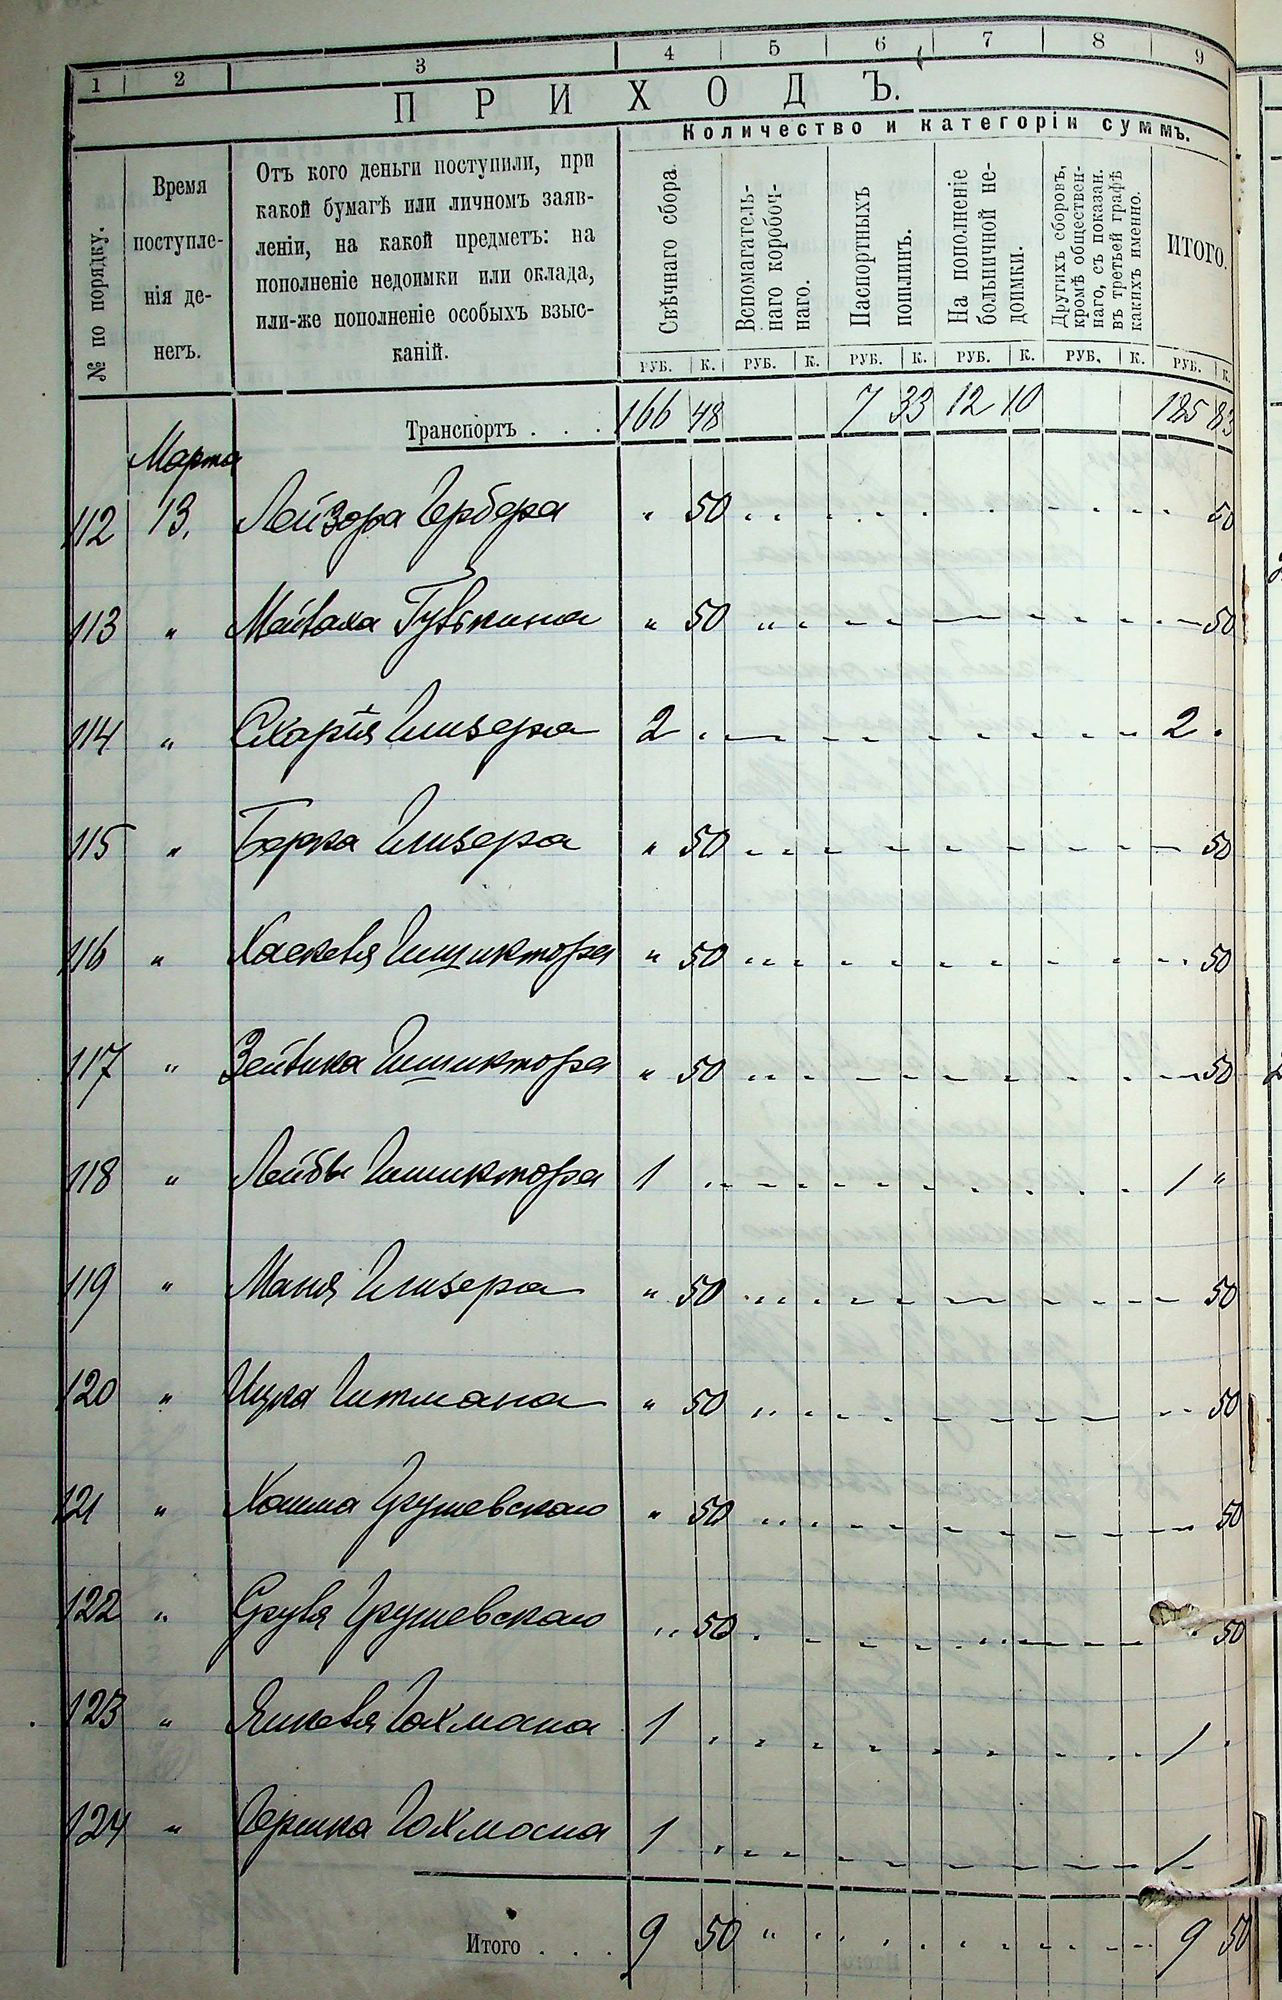 1 2 3 4 5 6 7 8 9
ПРИХОДЪ.
Количество и категоріи суммъ.
№ по порядку.
Время
поступле-
нія де-
негъ.
Отъ кого деньги поступили, при
какой бумагѣ или личномъ заяв-
леніи, на какой предметъ: на
пополненіе недоимки или оклада,
или-же пополненіе особыхъ взыс-
каній.
Свѣчнаго сбора.
Вспомагатель-
наго коробоч-
наго.
Паспортныхъ
пошлинъ.
На пополненіе
больничной не-
доимки.
Другихъ сборовъ,
кромѣ обществен-
наго, съ показан.
въ третьей графѣ
какихъ именно.
ИТОГО.
РУБ. К. РУБ. К. РУБ. К. РУБ. К. РУБ. К. РУБ. К.
Транспортъ . . . 166 48 7 33 12 10 185 83
Марта
112 13. Лейзора Гербера " 50 50
113 " " 50 50
114 " 2 2
115 " Берка " 50 50
116 " " 50 50
117 " " 50 50
118 " Лейбы 1 1 "
119 " " 50 50
120 " Ицка Гитмана " 50 50
121 " Грушевскаго " 50 50
122 " Сруля Грушевскаго " 50 50
123 " Янкеля Гохмана 1 1
124 " Гершка Гохмана 1 1
Итого . . . 9 50 " 9 50